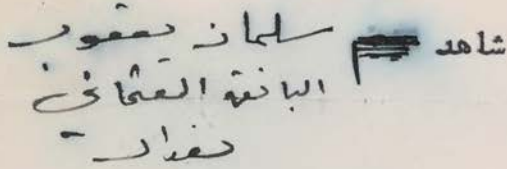 شاهد سلمان يعقوب
البانق العثماني
بغداد